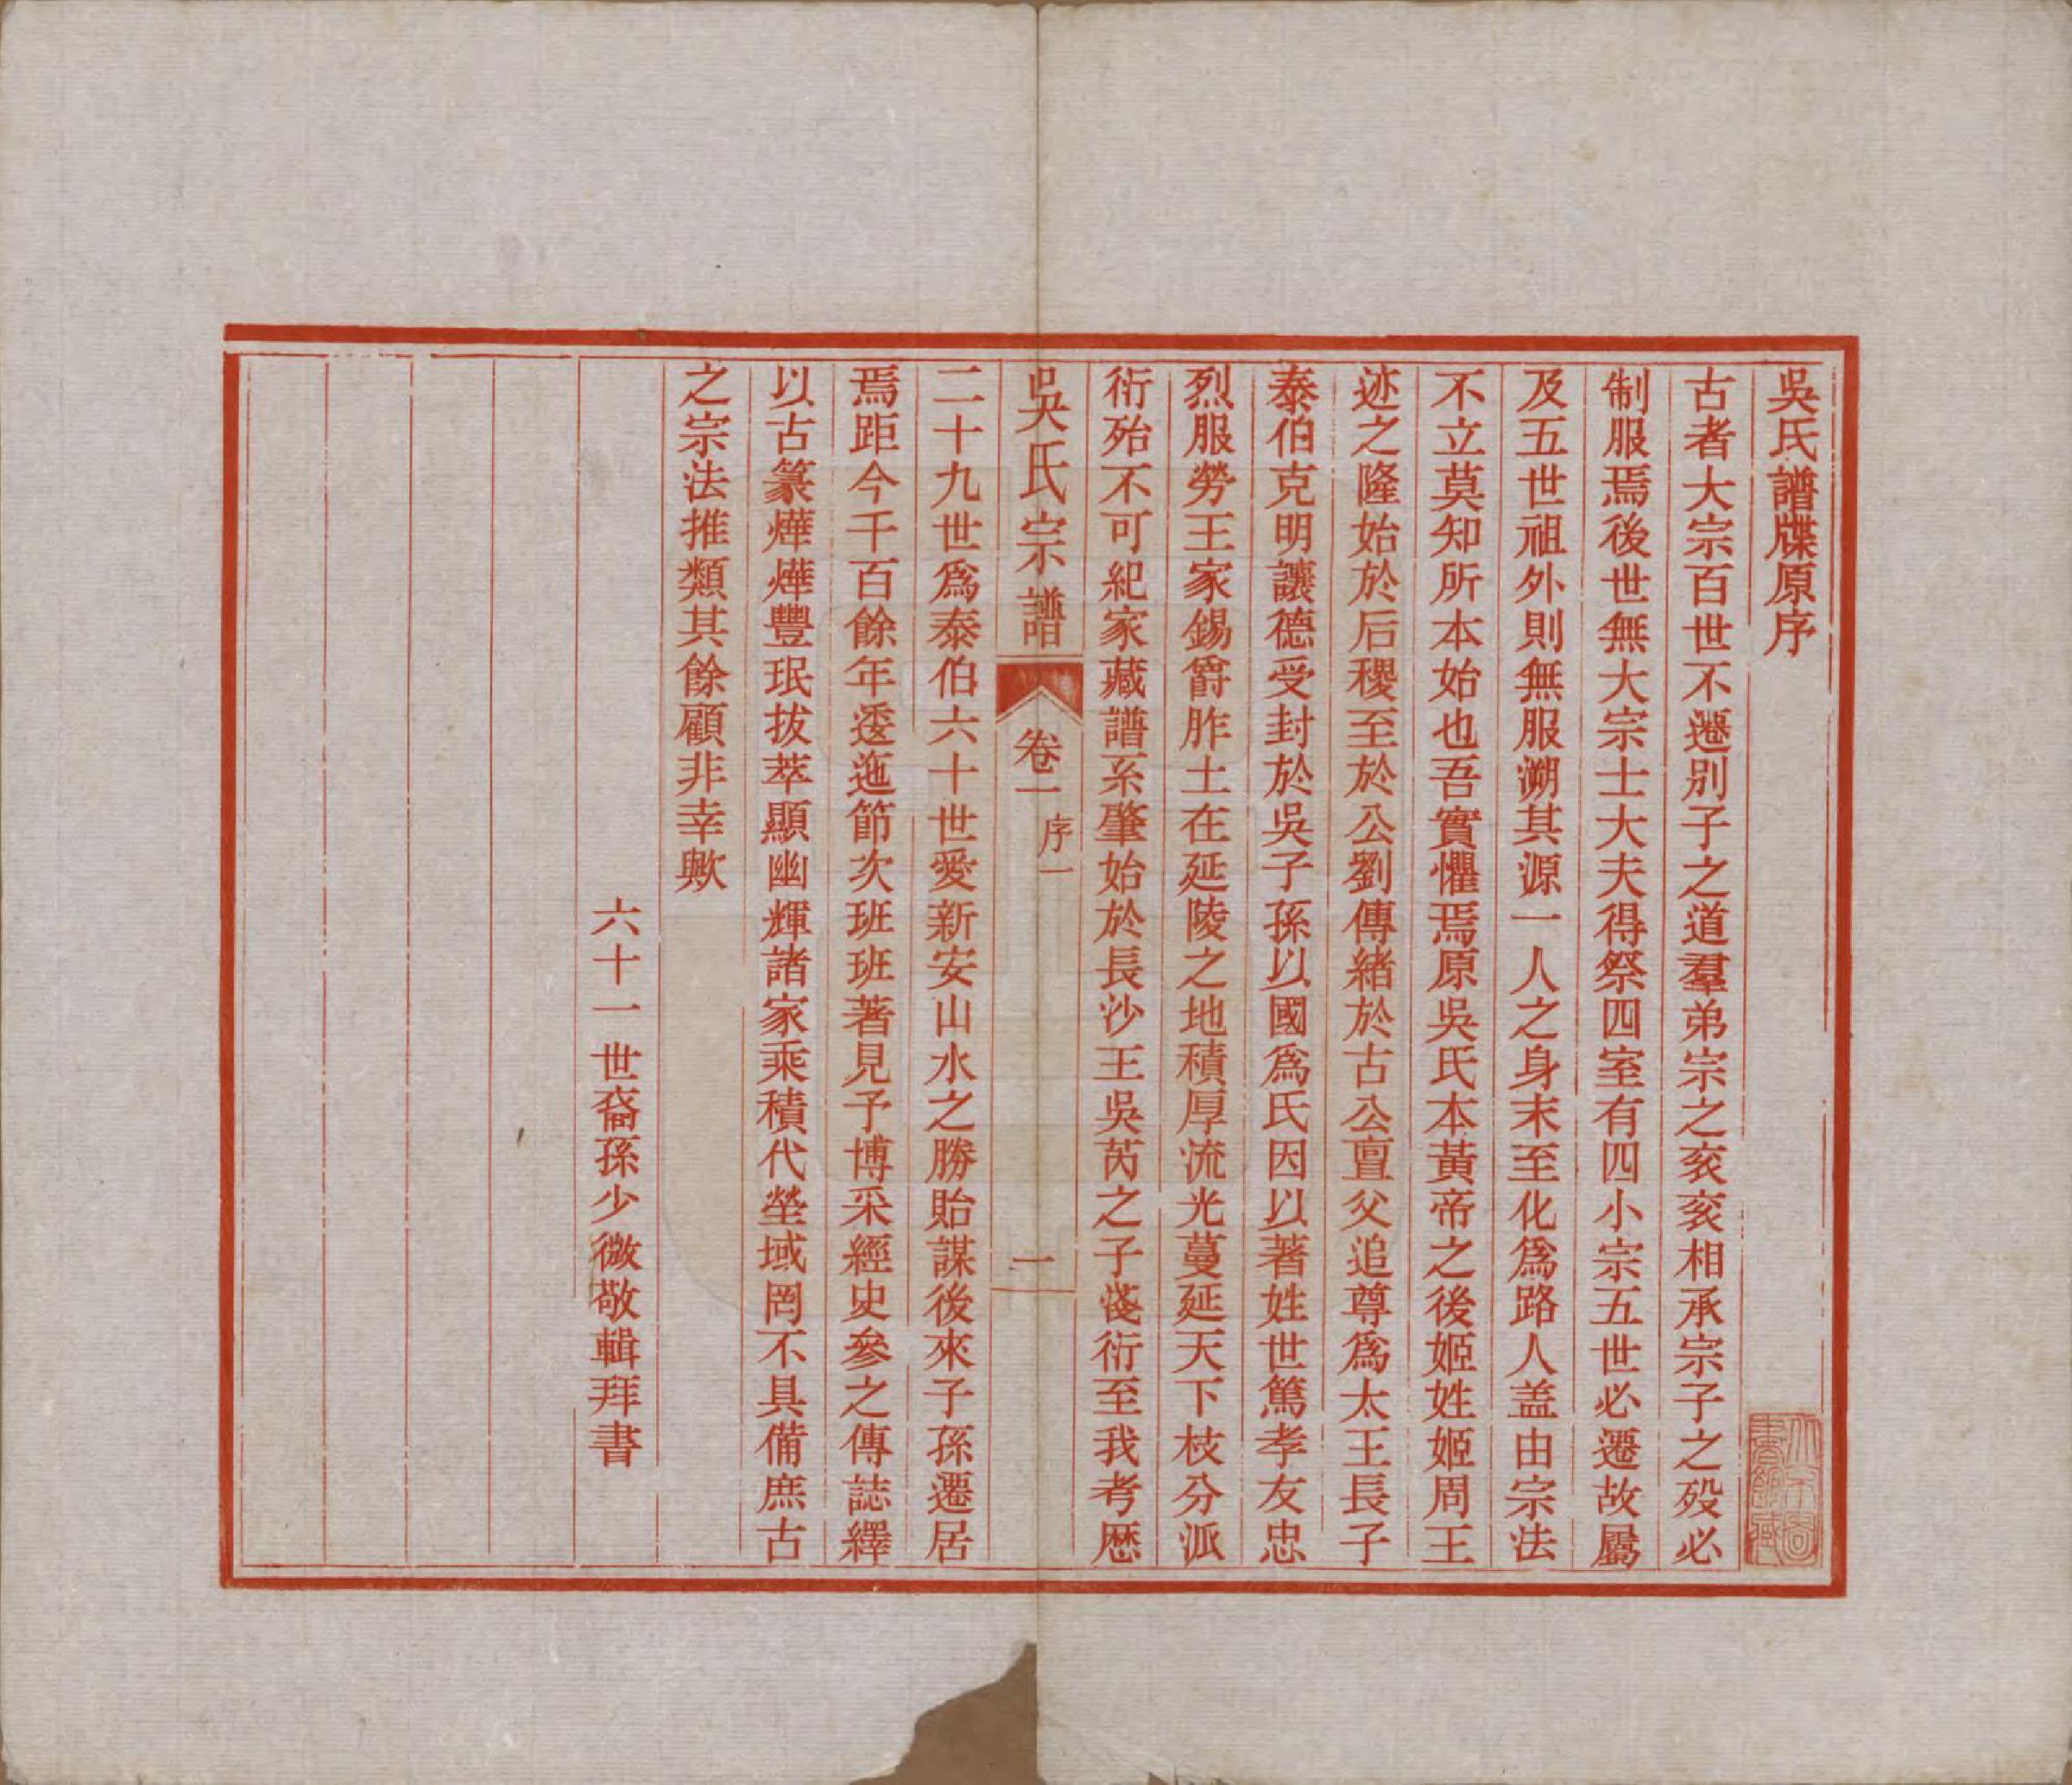 吳氏譜牒原序
古者大宗百世不遷別子之道羣弟宗之亥亥相承宗子之歿必
制服焉後世無大宗士大夫得祭四室有四小宗五世必遷故屬
及五世祖外則無服溯其源一人之身末至化爲路人盖由宗法
不立莫知所本始也吾實懼焉原吳氏本黃帝之後姬姓姬周王
迹之隆始於后稷至於公劉傳緒於古公亶父追尊爲太王長子
泰伯克明讓德受封於吳子孫以國爲氏因以著姓世篤孝友忠
烈服勞王家錫爵胙土在延陵之地積厚流光蔓延天下枝分派
衍殆不可紀家藏譜系肇始於長沙王吳芮之子淺衍至我考歷
吳氏宗譜 卷一 序一 一
二十九世爲泰伯六十世愛新安山水之勝貽謀後來子孫遷居
焉距今千百餘年逶迤節次班班著見予博采經史參之傳誌繹
以古篆燁燁豐珉拔萃顯幽輝諸家乘積代塋域罔不具備庶古
之宗法推類其餘顧非幸歟
六十一世裔孫少微敬輯拜書